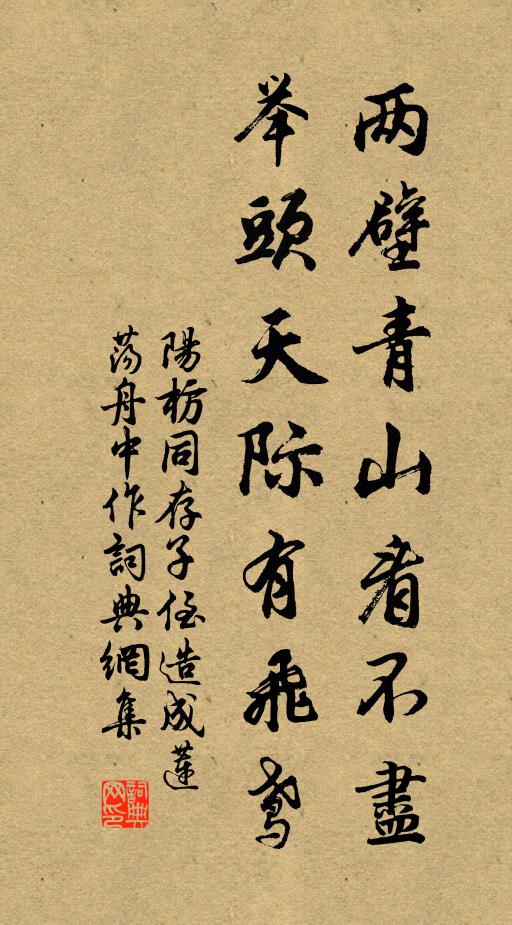 两壁青山看不盡
举頭天际有飛鸢
陽枋同存子侄造成蓮
蕩舟中作詞典網集
詞典网印